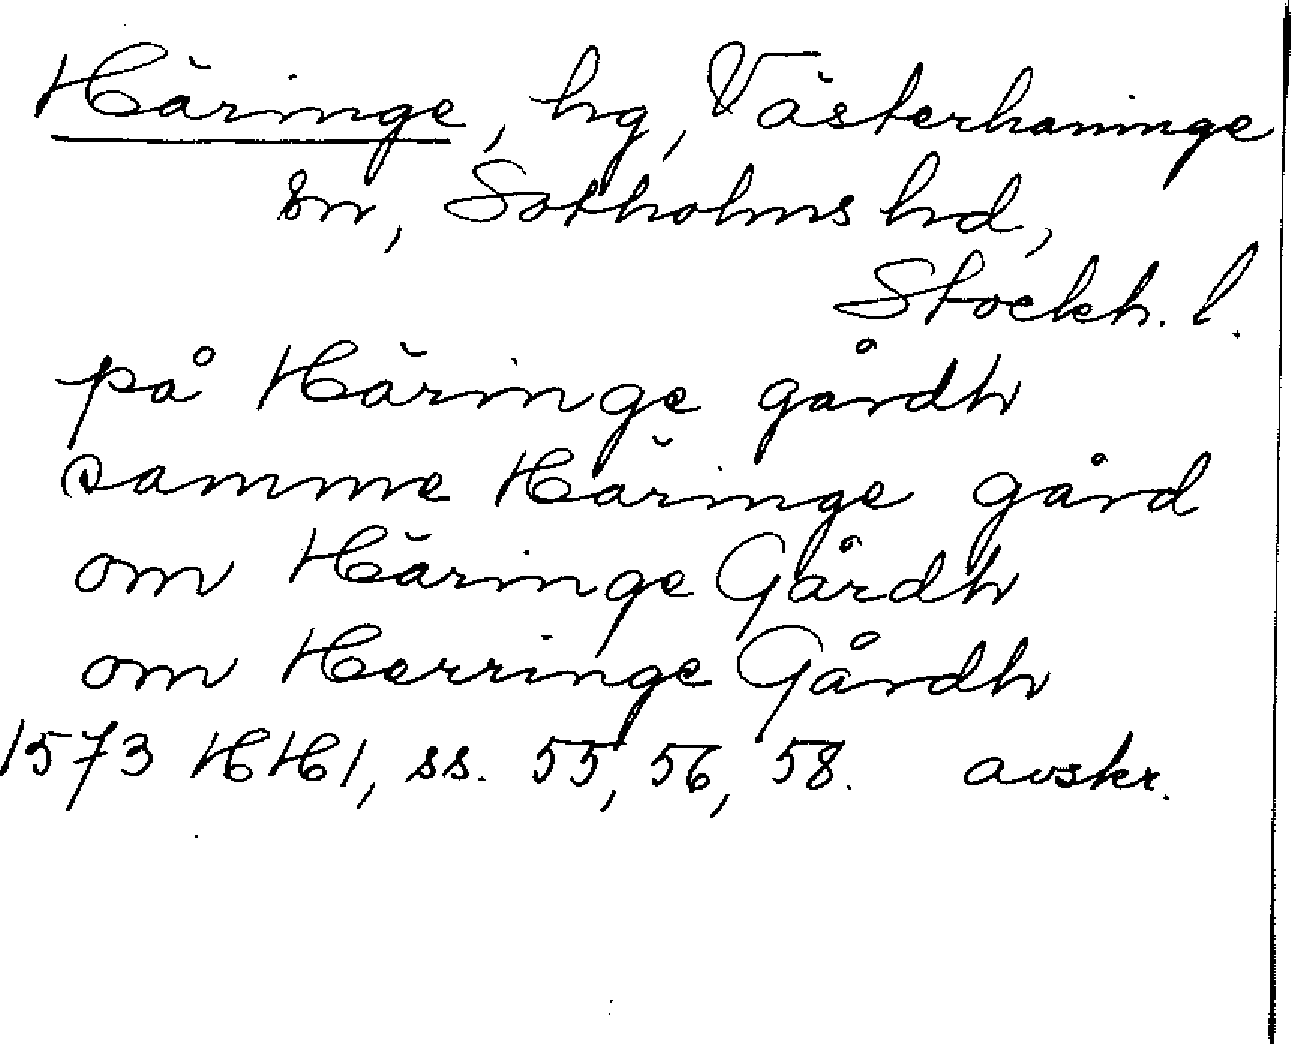 Häringe, hg, Västerhaninge
sn, Sotholms hd,
Stockh. l.
på Häringe gårdh
samme Häringe gård
om Häringe Gårdh
om Herringe Gårdh
1573 HH1, ss. 55, 56, 58. avskr.